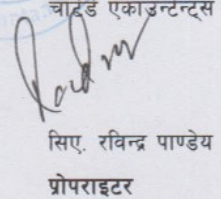 चार्टर्ड एकाउन्टेन्ट्स
सिए. रविन्द्र पाण्डेय
प्रोपराइटर